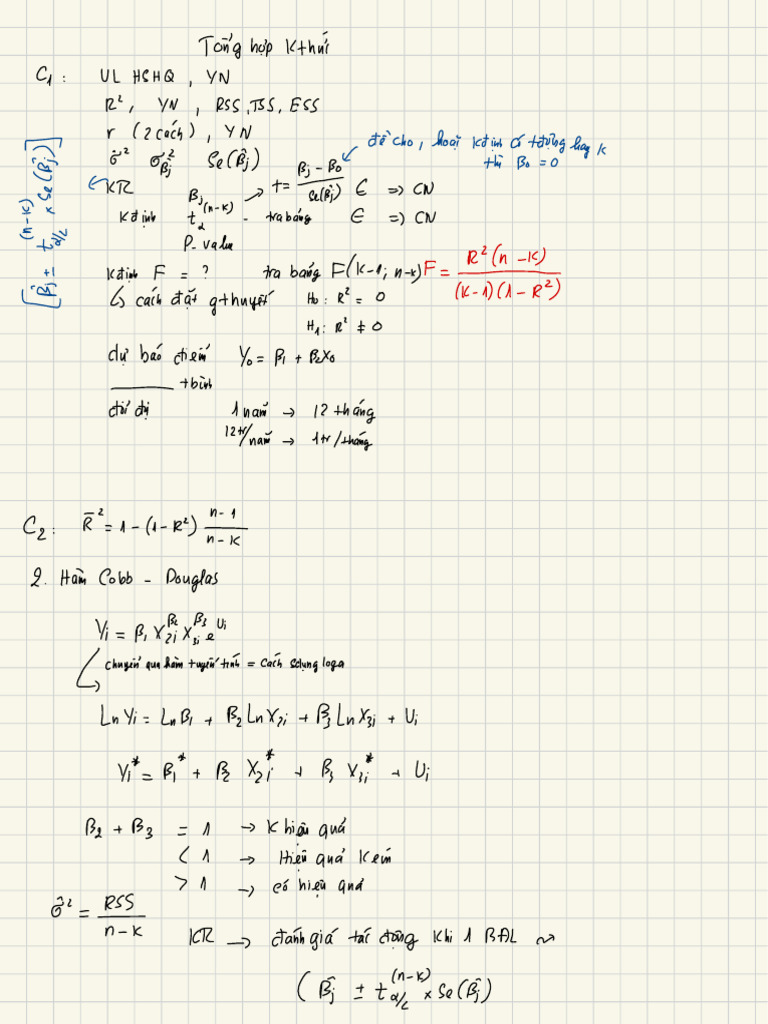 Tổng hợp kthức
C1 : UL HSHQ , YN
R², YN , RSS, TSS, ESS
r (2 cách) , YN
σ̂² σ²β̂j Se(β̂j)
đề cho, hoặc kđịnh có tđộng hay k
thì β0 = 0
KR
[β̂j ± t α/2 (n-k) × Se(β̂j)]
kđịnh βj → t = (βj - β0) / Se(β̂j) ∈ => CN
t α (n-k) - tra bảng ∈ => CN
P-value
kđịnh F = ? tra bảng F(k-1; n-k) F = R²(n-k) / (k-1)(1-R²)
↳ cách đặt gthuyết H0 : R² = 0
H1 : R² ≠ 0
dự báo điểm Y0 = β1 + β2X0
_______ + bình
đổi đvị 1 năm → 12 tháng
12tr/năm → 1tr/tháng
C2 : R̄² = 1 - (1-R²) (n-1) / (n-k)
2. Hàm Cobb - Douglas
Yi = β1 X2i^β2 X3i^β3 e^Ui
chuyển qua hàm tuyến tính = cách sdụng loga
LnYi = Lnβ1 + β2 LnX2i + β3 LnX3i + Ui
Yi* = β1* + β2 X2i* + β3 X3i* + Ui
β2 + β3 = 1 → K hiệu quả
< 1 → Hiệu quả kém
> 1 → có hiệu quả
σ̂² = RSS / (n-k)
KR → đánh giá tác động khi 1 BĐL ~>
(β̂j ± t α/2 (n-k) × Se(β̂j)